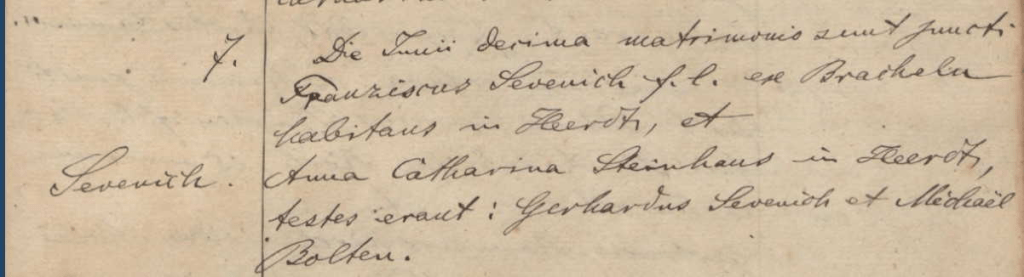 7. Die Junii decima matrimonio sunt juncti
Franziscus Sevenich f. l. ex Bracheln
habitans in Heerdt, et
Sevenich. Anna Catharina Steinhaus in Heerdt,
testes erant: Gerhardus Sevenich et Michaël
Bolten.